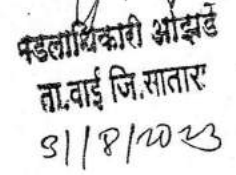 मंडलाधिकारी ओझर्डे
ता.वाई जि.सातारा
31/8/2023